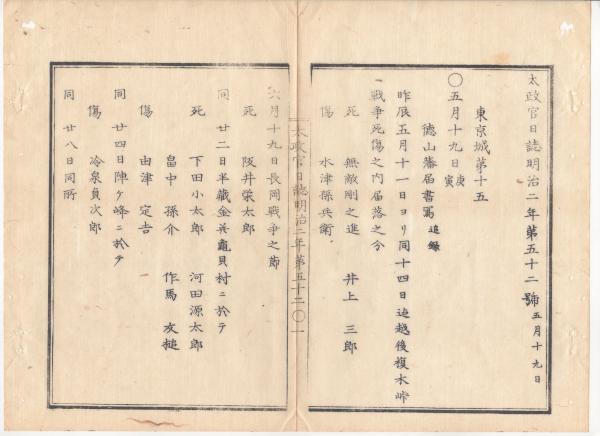 太政官日誌明治二年第五十二號 五月十九日
東京城第十五
〇五月十九日庚寅
徳山藩届書寫 追録
昨辰五月十一日ヨリ同十四日迠越後榎木峠
戦争死傷之内届落之分
死 無敵剛之進 井上三郎
傷 水津孫兵衛
太政官日誌明治二年第五十二〇一
六月十九日長岡戦争之節
死 阪井榮太郎
同廿二日半蔵金并亀貝村ニ於テ
死 下田小太郎 河田源太郎
畠中孫介 作馬友槌
傷 由津定吉
同廿四日陣ケ峰ニ於テ
傷 冷泉貞次郎
同廿八日同所